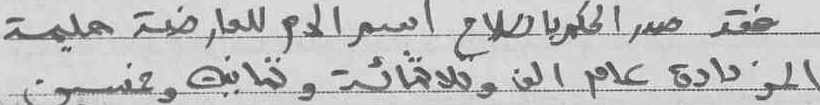 فقد صدر الحكم باصلاح اسم الام للعارضة حليمة
المزدادة عام الف وثلاثمائة وثمانية وخمسين